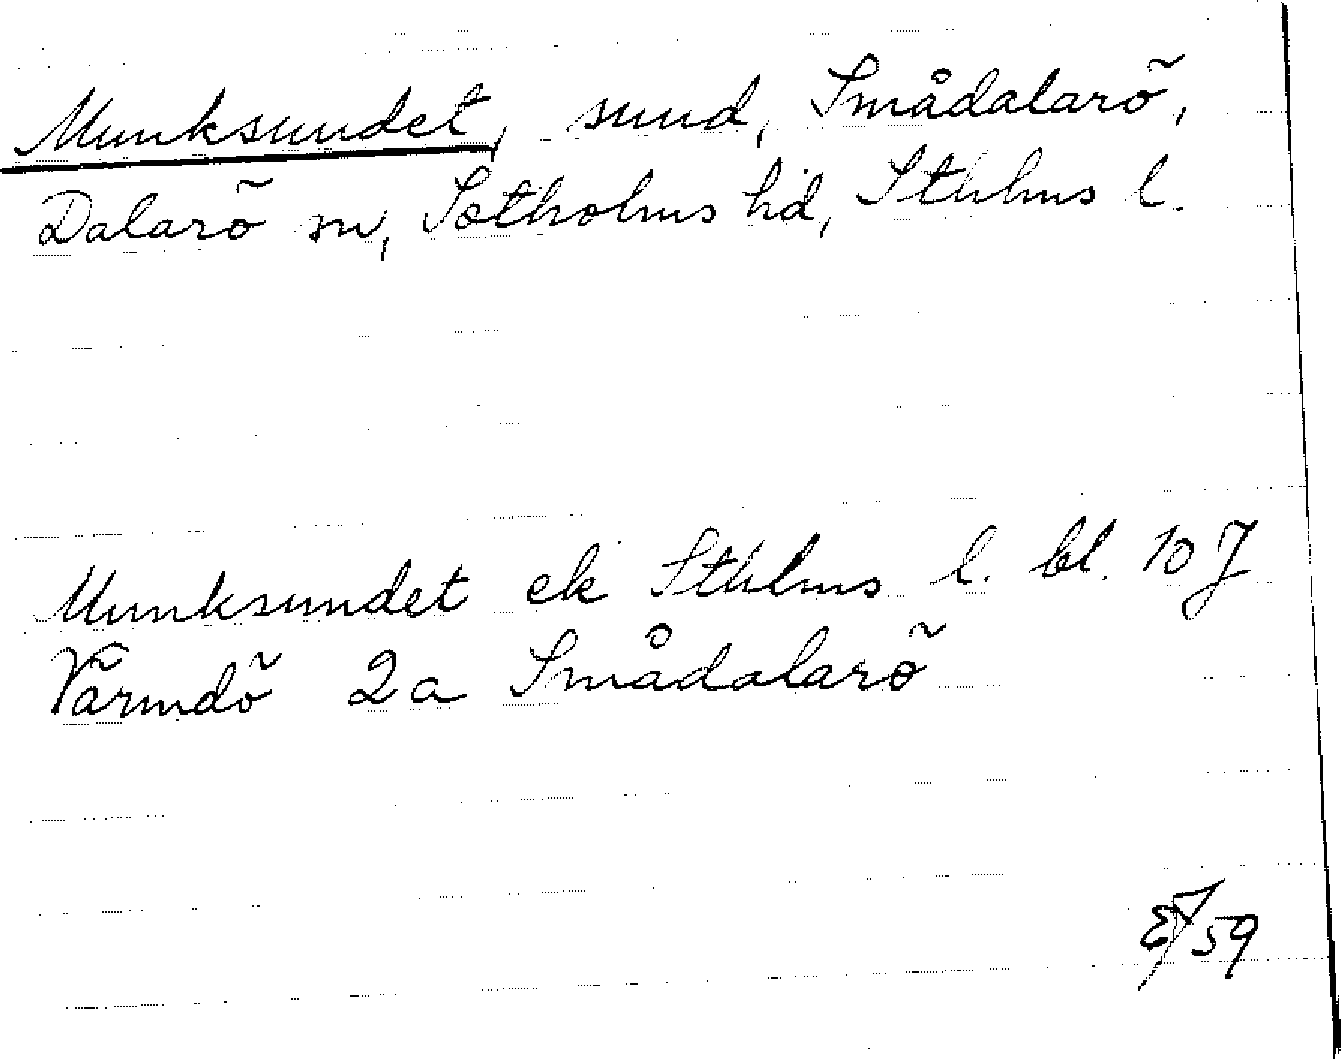 Munksundet, sund, Smådalarö,
Dalarö sn, Sotholms hd, Sthlms l.
Munksundet ek Sthlms l. bl. 10 J
Värmdö 2a Smådalarö
59